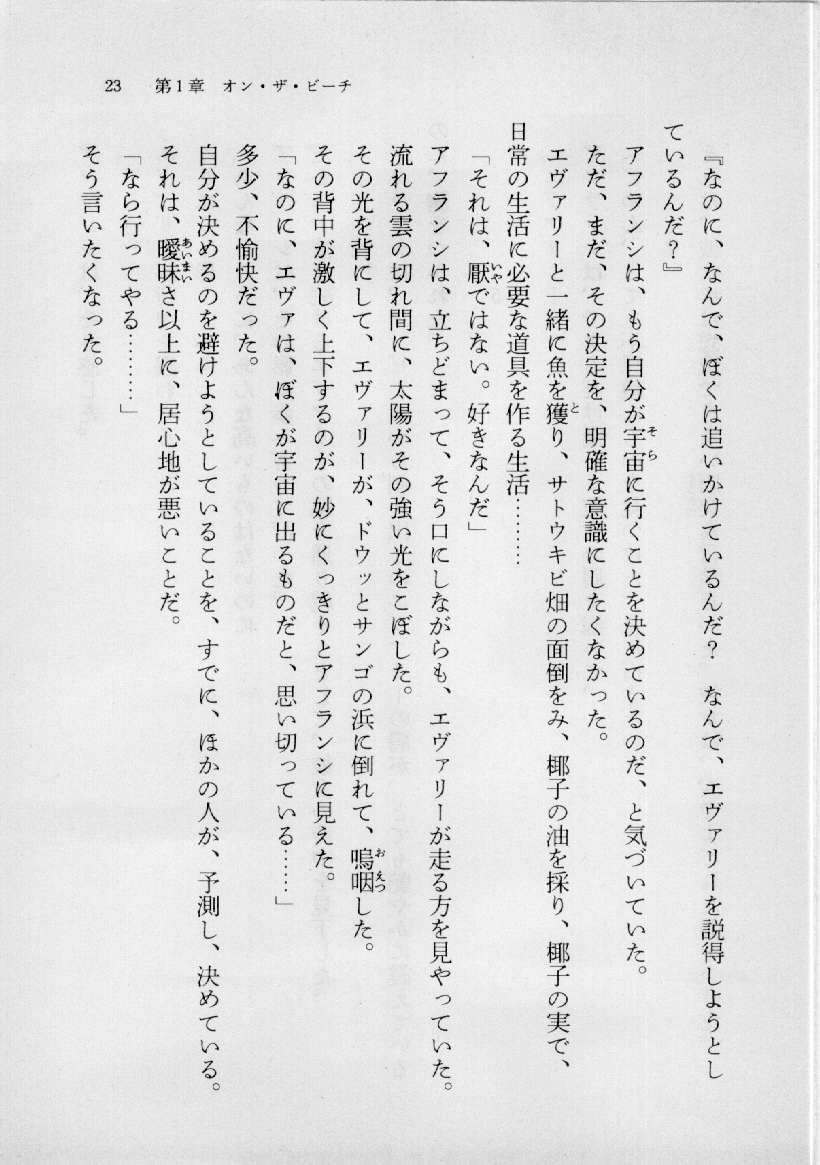 23 第1章 オン・ザ・ビーチ
『なのに、なんで、ぼくは追いかけているんだ? なんで、エヴァリーを説得しようとし
ているんだ?』
アフランシは、もう自分が宇宙に行くことを決めているのだ、と気づいていた。
ただ、まだ、その決定を、明確な意識にしたくなかった。
エヴァリーと一緒に魚を獲り、サトウキビ畑の面倒をみ、椰子の油を採り、椰子の実で、
日常の生活に必要な道具を作る生活………
「それは、厭ではない。好きなんだ」
アフランシは、立ちどまって、そう口にしながらも、エヴァリーが走る方を見やっていた。
流れる雲の切れ間に、太陽がその強い光をこぼした。
その光を背にして、エヴァリーが、ドウッとサンゴの浜に倒れて、嗚咽した。
その背中が激しく上下するのが、妙にくっきりとアフランシに見えた。
「なのに、エヴァは、ぼくが宇宙に出るものだと、思い切っている……」
多少、不愉快だった。
自分が決めるのを避けようとしていることを、すでに、ほかの人が、予測し、決めている。
それは、曖昧さ以上に、居心地が悪いことだ。
「なら行ってやる………」
そう言いたくなった。